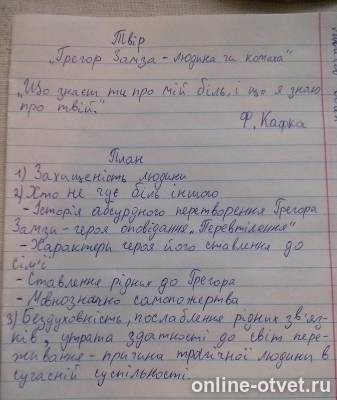 Твір
„Грегор Замза - людина чи комаха"
„Що знаєш ти про мій біль, і що я знаю
про твій."
Ф. Кафка
План
1) Захищеність людини
2) Хто не чує біль іншого
- Історія абсурдного перетворення Грегора
Замзи - героя оповідання „Перевтілення"
- Характери героя його ставлення до
сім'ї
- Ставлення рідних до Грегора
- Мовнозначно самопожертва
3) Бездуховність, послаблення рідних зв'яз-
ків, утрата здатності до світ пере-
живання - причина трагічної людини в
сучасній суспільності.
online-otvet.ru